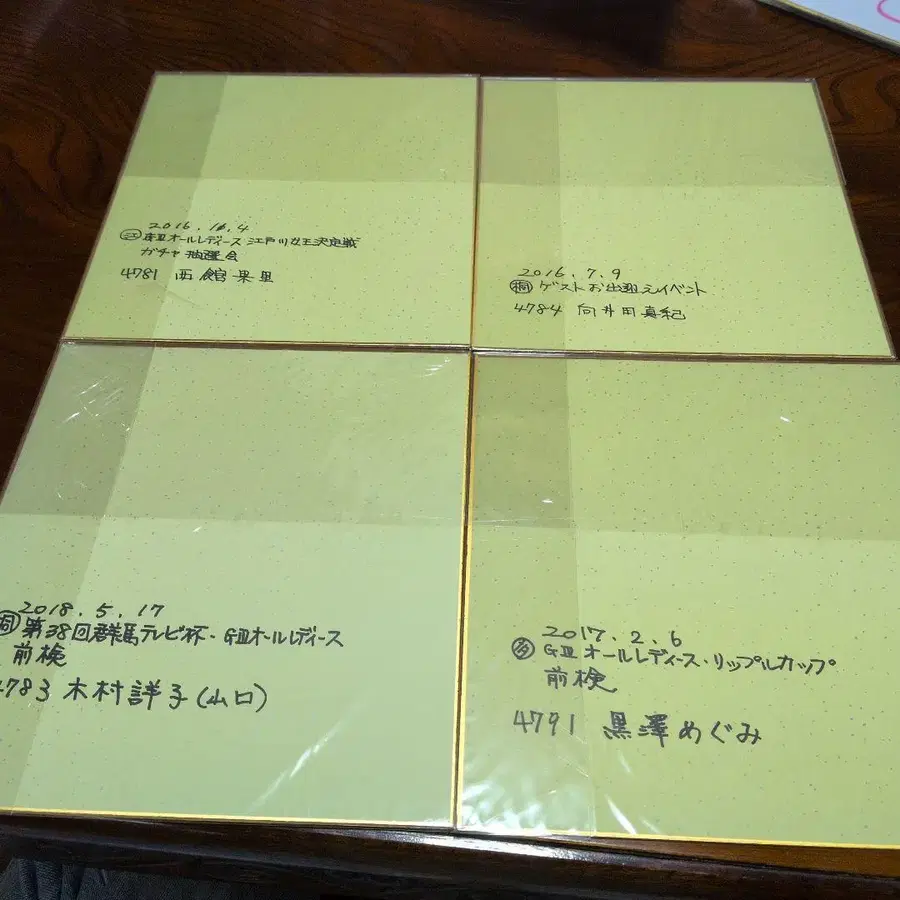 2016.11.4
江 GⅢオールレディース 江戸川女王決定戦
ガチャ抽選会
4781 西舘果里
2016.7.9
桐 ゲストお出迎えイベント
4784 向井田真紀
2018.5.17
桐 第38回群馬テレビ杯・GⅢオールレディース
前検
4783 木村詳子(山口)
2017.2.6
多 GⅢオールレディース・リップルカップ
前検
4791 黒澤めぐみ